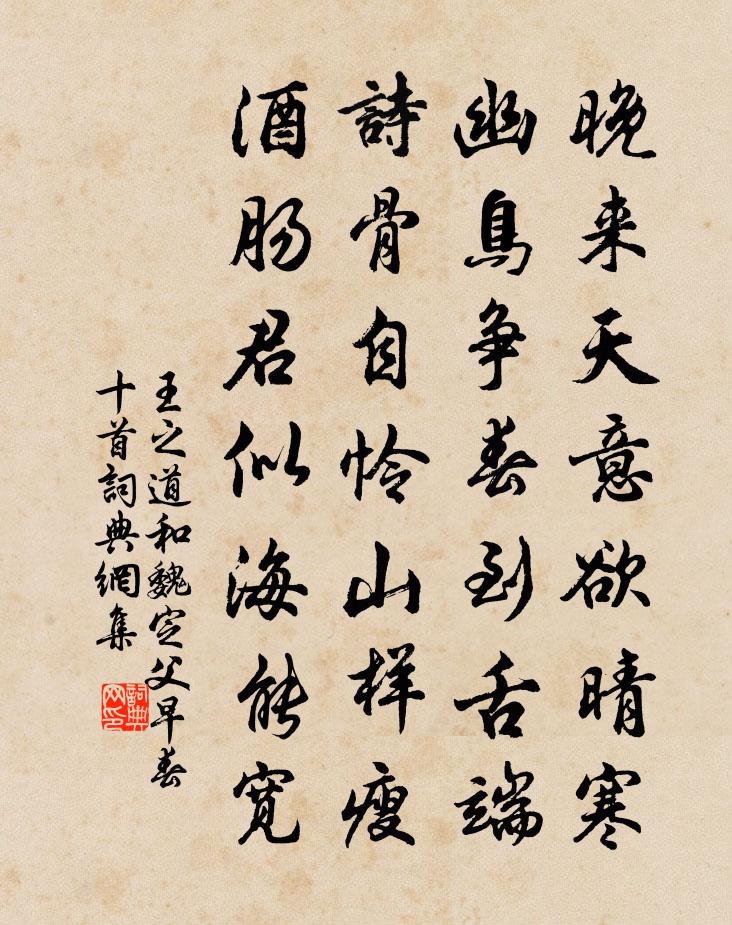 晚来天意欲晴寒
幽鳥争春到舌端
詩骨自怜山样瘦
酒肠君似海能寬
王之道和魏定父早春
十首詞典網集
詞典网印